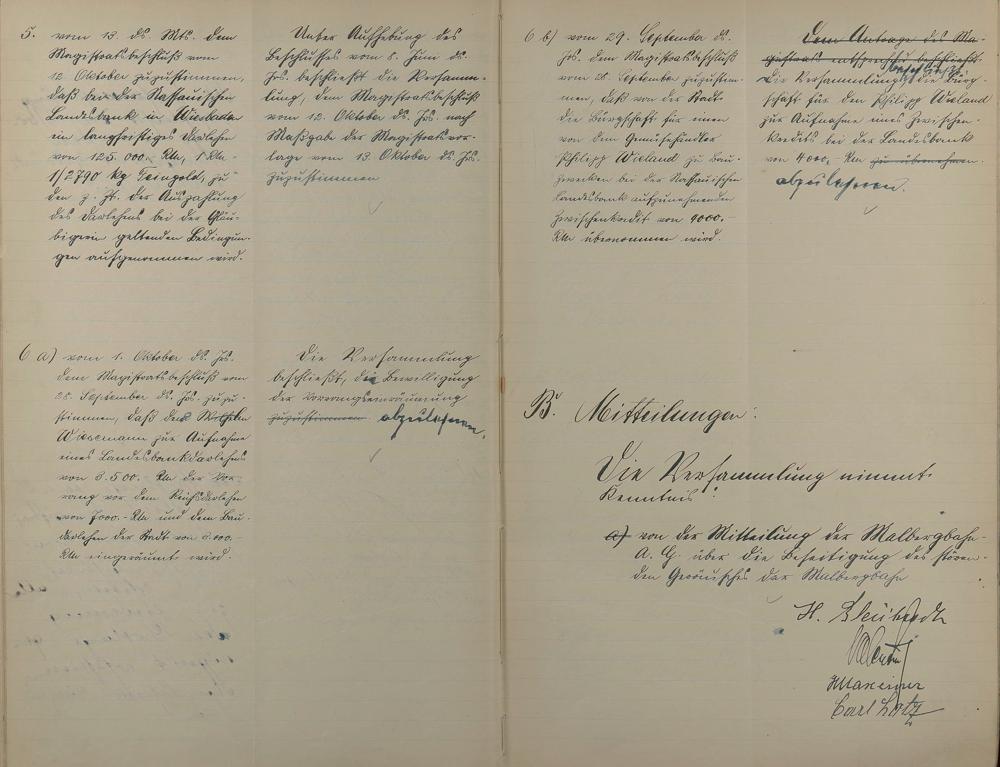 5. vom 13. ds. Mts. dem
Magistratsbeschluß vom
12. Oktober zuzustimmen,
daß bei der Nassauischen
Landesbank in Wiesbaden
ein langfristiges Darlehen
von 125.000.- RM, 1 RM -
1/2790 kg Feingold, zu
den z. Zt. der Auszahlung
des Darlehens bei der Gläu-
bigerin geltenden Bedingun-
gen aufgenommen wird.
Unter Aufhebung des
Beschlusses vom 8. Juni ds.
Jrs. beschließt die Versamm-
lung, dem Magistratsbeschluß
vom 12. Oktober ds. Js. nach
Maßgabe der Magistratsvor-
lage vom 13. Oktober ds. Js.
zuzustimmen
6 a) vom 1. Oktober ds. Jrs.
dem Magistratsbeschluß vom
28. September ds. Jrs. zuzu-
stimmen, daß dem Wilhelm
Wiesemann zur Aufnahme
eines Landesbankdarlehens
von 3.500. RM der Vor-
rang vor dem Reichsdarlehen
von 7000.- RM und dem Bau-
darlehen der Stadt von
RM eingeräumt wird.
Die Versammlung
beschließt, die Bewilligung
der Vorrangseinräumung
zuzustimmen abzulehnen.
6 b) vom 29. September ds.
Jrs. dem Magistratsbeschluß
vom 28. September zuzustim-
men, daß von der Stadt
die Bürgschaft für einen
von dem Gemüsehändler
Philipp Wieland zu Bau-
zwecken bei der Nassauischen
Landesbank aufzunehmenden
Zwischenkredit von 4000.-
RM übernommen wird.
Dem Antrage des Ma-
gistrats entsprechend beschließt
beschließt
die Versammlung die Bürg-
schaft für den Philipp Wieland
zur Aufnahme eines Zwischen-
kredits bei der Landesbank
von 4000.- RM zu übernehmen.
abzulehnen.
B. Mitteilungen:
Die Versammlung nimmt
Kenntnis:
a) von der Mitteilung der Malbergbahn-
A. G. über die Beseitigung des stören-
den Geräusches der Malbergbahn
H.
Carl Lotz